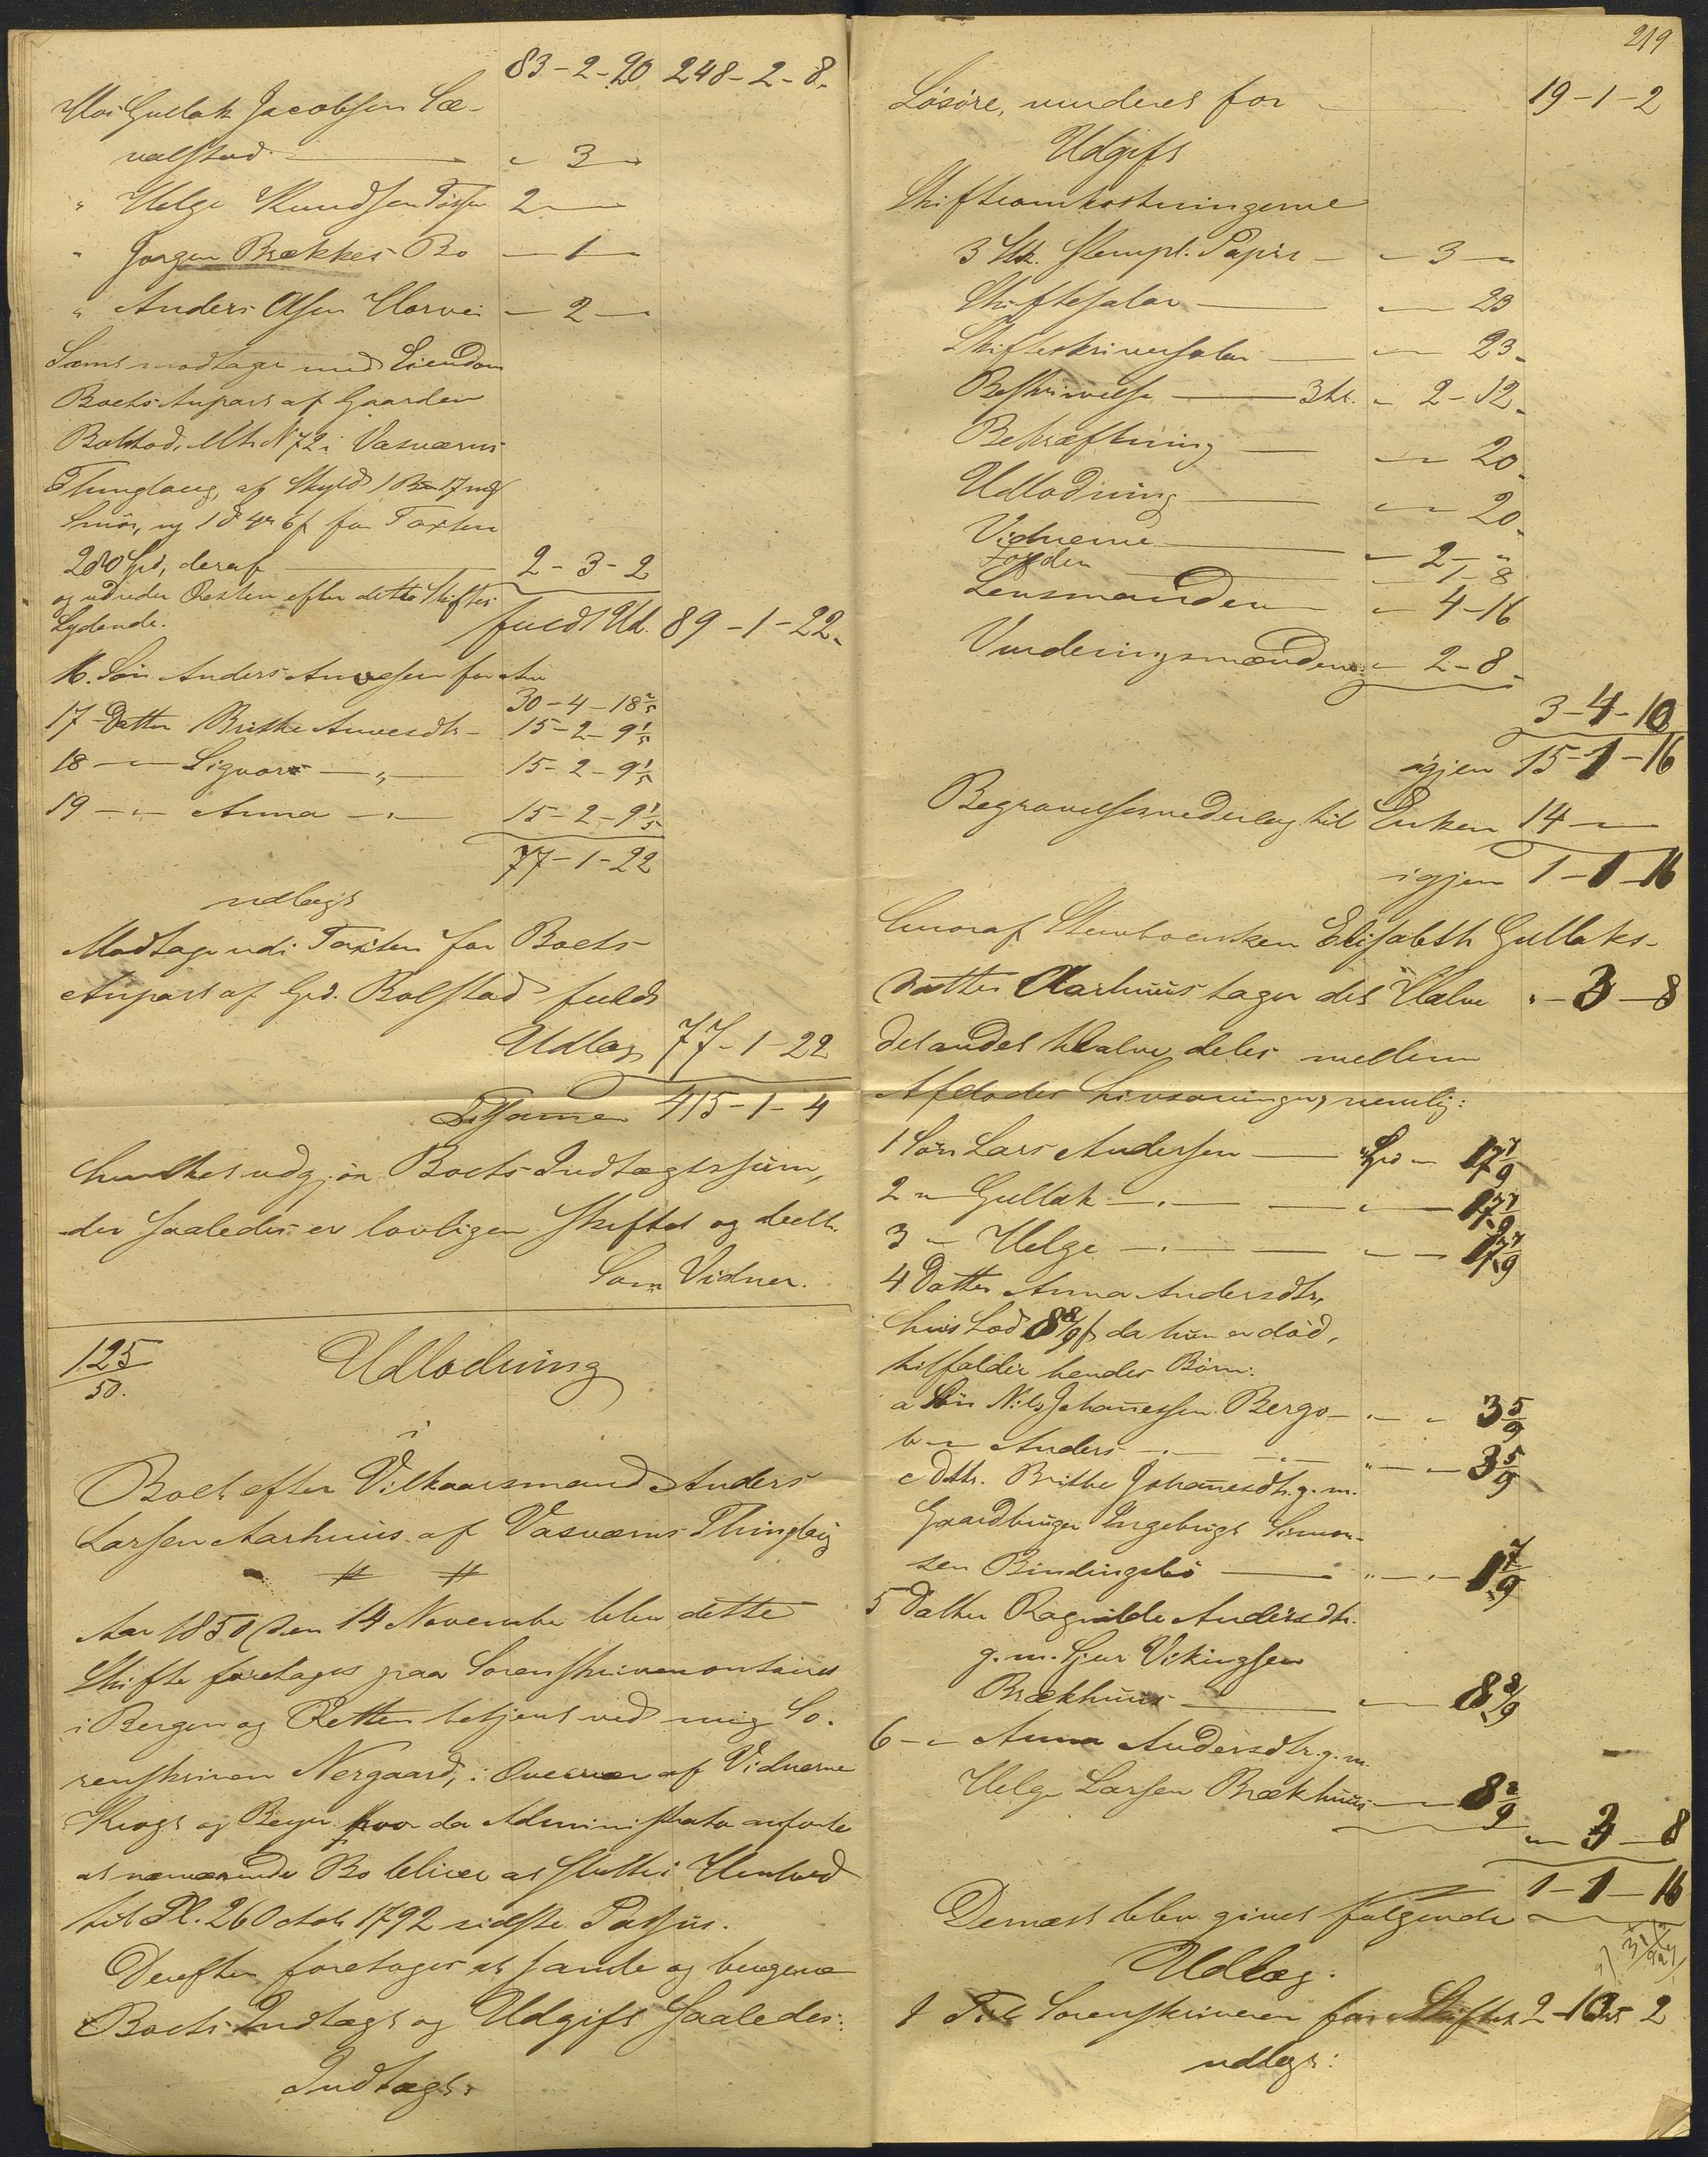 83-2-20 248-2-8.
Hos Gullak Jacobsen Sæ-
valstad - " 3 -
" Helge Knudsen Tøssen 2 -
" Jørgen Brækkes Bo - 1 -
" Anders Olsen Horvei - 2 -
Samt modtager med Eiendom
Boets Anpart af Gaarden
Bolstad, Mt. N 72 i Vasværns
Thinglaug, af Skyld 17 mk
Smør, ny 1 d 4 ort 6 s for Taxten
280 Spd, deraf 2-3-2
og udreder Resten efter dette Skiftes
Lydende. fuldt Udl. 89-1-22.
16. Søn Anders Anvesen for Arv 30-4-18 2/5
17 Datter Brithe Anvesdtr - 15-2-9 1/5
18 - " - Sigvor - " - 15-2-9 1/5
19 - " - Anna - " - 15-2-9 1/5
77-1-22
udlagt
Modtage udi Taxten for Boets
Anpart af Grd. Bolstad fuldt
Udlæg 77-1-22
Tilsammen 415-1-4
hvilket udgjør Boets Indtægtssum,
der saaledes er lovligen skiftet og deelt.
Som Vidner.
125
50.
Udlodning
i
Boet efter Vilkaarsmand Anders
Larsen Aarhuus af Vasværns Thinglaug
Aar 1850 den 14 November blev dette
Skifte foretaget paa Sorenskrivercontoiret
i Bergen og Retten betjent ved mig So-
renskriver Nergaard, i Overvær af Vidnerne
Krogh og Beyer hvor da Administrator anførte
at nærværende Bo bliver at slutte i Henhold
til Pl. 26 Octob 1792 sidste Passus.
Derefter foretoges at samle og beregne
Boets Indtægt og Udgift saaledes:
Indtægt:
219
Løsøre, vurderet for 19-1-2
Udgift
Skifteomkostningerne
3 Stk. Stempl. Papir - " - 3 - "
Skiftesalar - " - 23
Skifteskriversalar - " - 23 -
Beskrivelse - 3 sk. " 2-12 -
Bekræftning - " - 20 -
Udlodning - " - 20 -
Vidnerne - " - 2 - "
Fogden - " 1-8
Lensmanden - " 4-16
Vurderingsmændene - " 2-8 -
3-4-10
igjen 15-1-16
Begravelsesvederlag til Enken 14 -
igjen 1-1-16
hvoraf Stervboenken Elisabeth Gullaks-
datter Aarhuus tager det Halve " - 3 - 8
det andet Halve deles mellem
Afdødes Livsarvinger, nemlig:
1 Søn Lars Andersen - Spd " 17 7/9
2 " Gullak - " - " - 17 7/9
3 " Helge - " - " - 17 7/9
4 Datter Anna Andersdtr,
hvis Lod 8 8/9 s da hun er død,
tilfalder hendes Børn:
a Søn Nils Johannessen Bergo - " - " 3 5/9
b " Anders - " - " - " 3 5/9
c Dttr. Brithe Johannesdtr. g. m.
Gaardbruger Ingebrigt Simon-
sen Bindingsbø - " - " 1 7/9
5 Datter Ragnilde Andersdtr.
g. m. Sjur Vikingsen
Brækhuus - " 8 8/9
6 - " Anna Andersdtr. g. m.
Helge Larsen Brækhuus - " 8 8/9
" 3 - 8
1-1-16
Dernæst blev givet følgende
Udlæg.
1 Til Sorenskriveren for Skiftet 2-
udlagt: